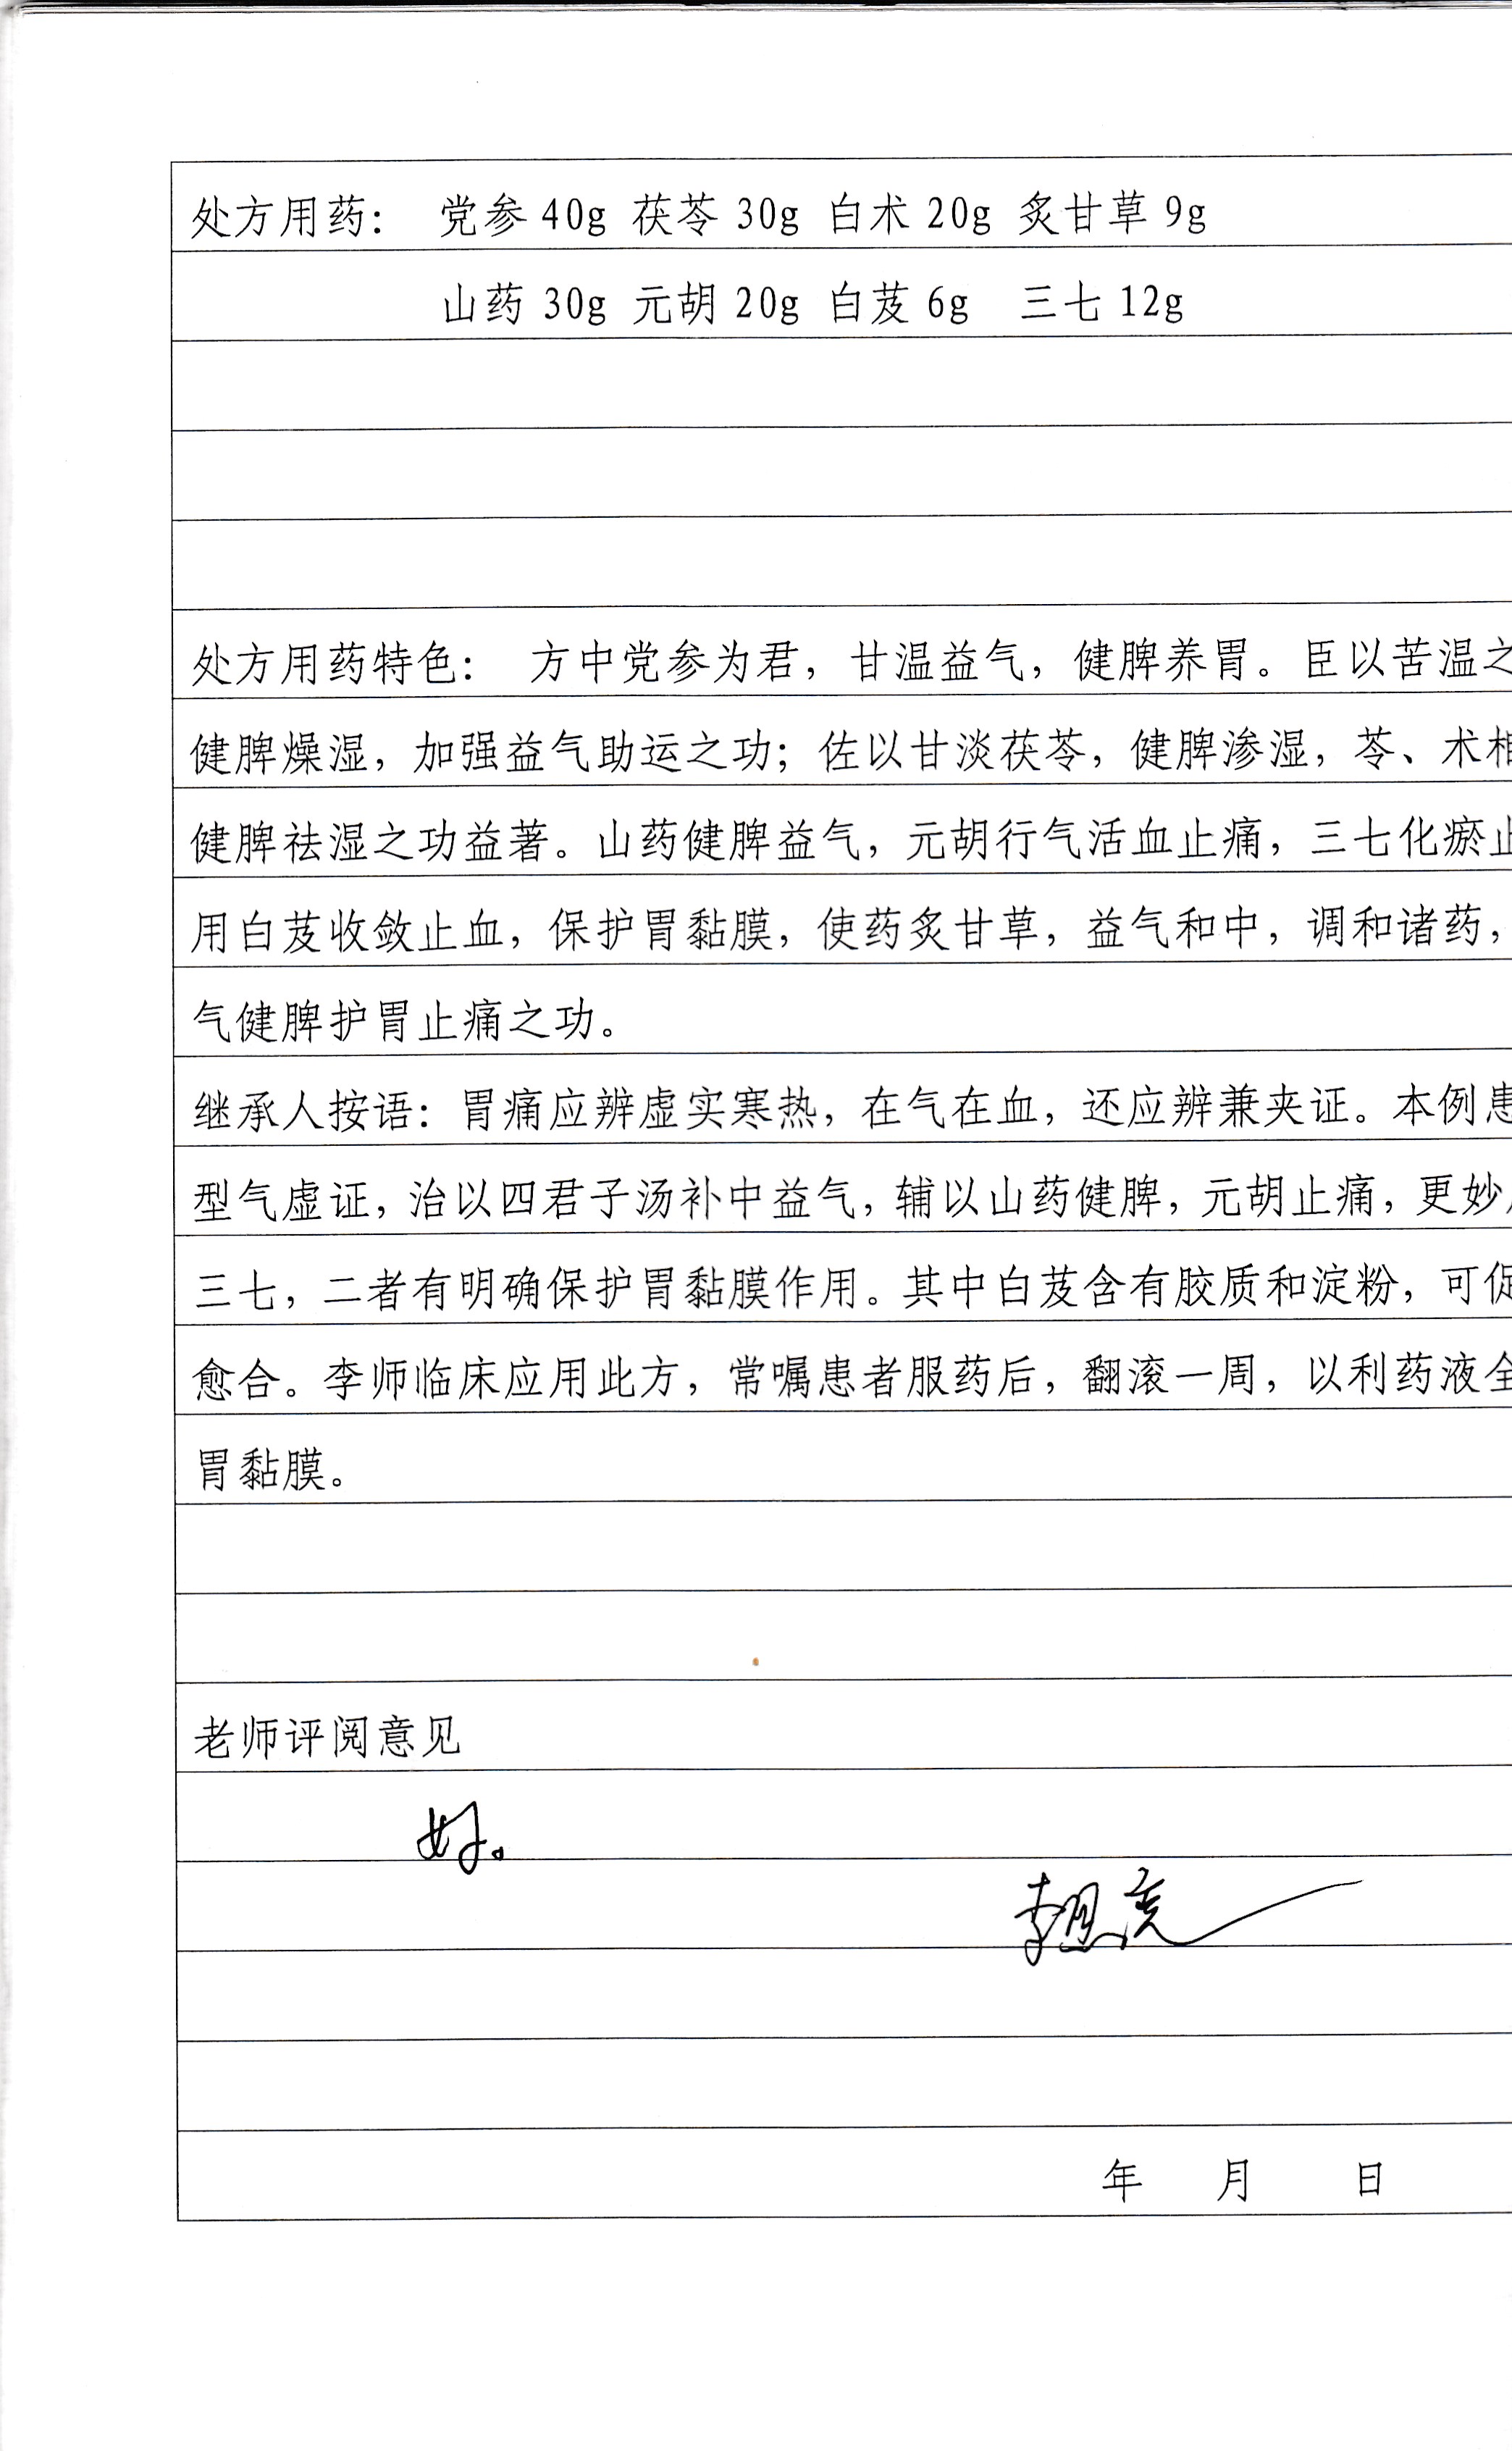 处方用药： 党参 40g 茯苓 30g 白术 20g 炙甘草 9g
山药 30g 元胡 20g 白芨 6g 三七 12g
处方用药特色： 方中党参为君，甘温益气，健脾养胃。臣以苦温之
健脾燥湿，加强益气助运之功；佐以甘淡茯苓，健脾渗湿，苓、术相
健脾祛湿之功益著。山药健脾益气，元胡行气活血止痛，三七化瘀止
用白芨收敛止血，保护胃黏膜，使药炙甘草，益气和中，调和诸药，
气健脾护胃止痛之功。
继承人按语：胃痛应辨虚实寒热，在气在血，还应辨兼夹证。本例患
型气虚证，治以四君子汤补中益气，辅以山药健脾，元胡止痛，更妙
三七，二者有明确保护胃黏膜作用。其中白芨含有胶质和淀粉，可促
愈合。李师临床应用此方，常嘱患者服药后，翻滚一周，以利药液全
胃黏膜。
老师评阅意见
好。
年 月 日